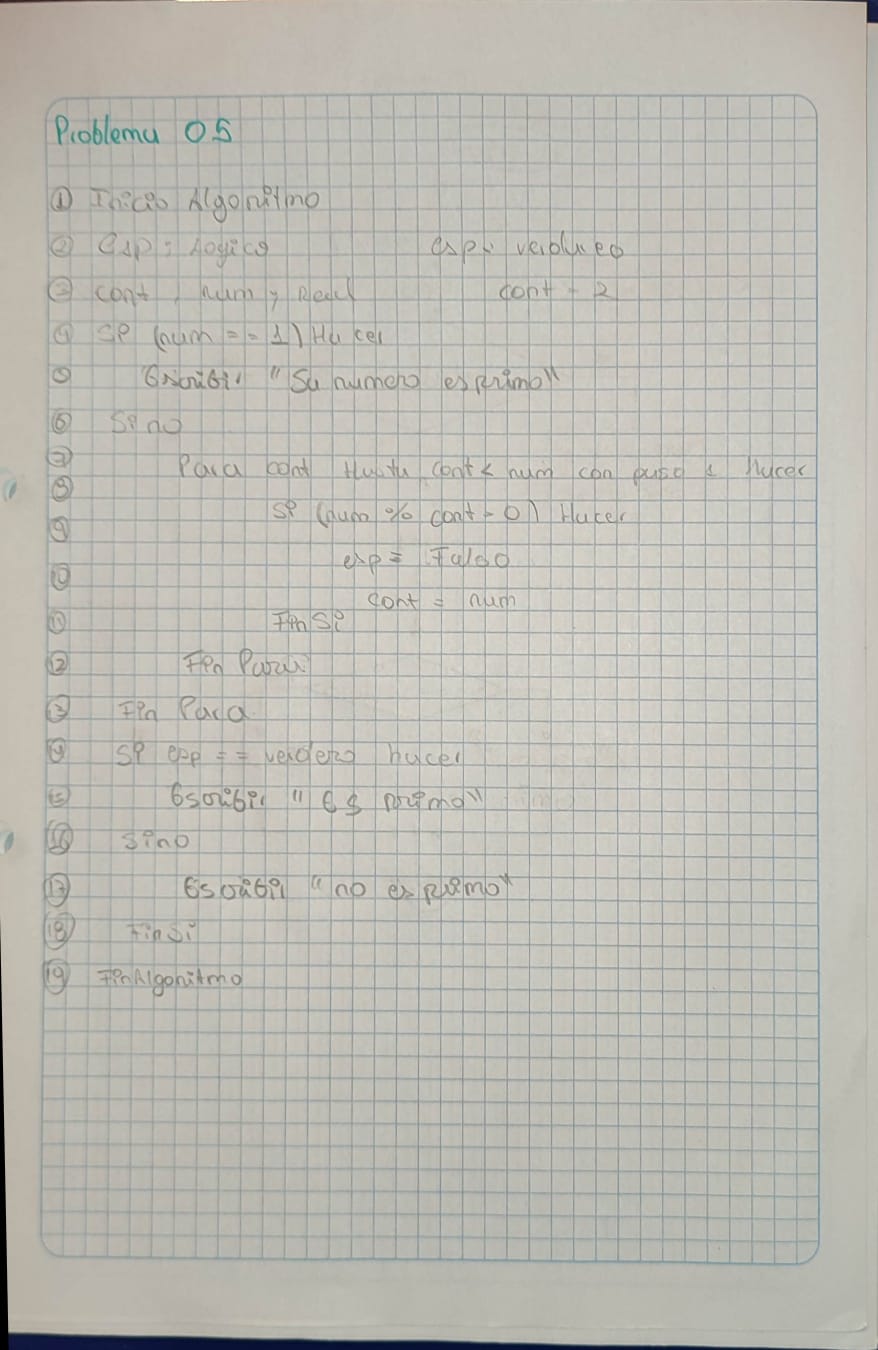 Problema 05
① Inicio Algoritmo
② esp : Logico esp = verdadero
③ cont , num , Real cont = 2
④ Si (num == 1) Hacer
⑤ Escribir "Su numero es primo"
⑥ Si no
⑦ Para cont Hasta cont < num con paso 1 Hacer
⑧
⑨ Si (num % cont = 0) Hacer
esp = Falso
⑩ cont = num
⑪ Fin Si
⑫ Fin Para
⑬ Fin Para
⑭ Si esp == verdero hacer
⑮ Escribir "Es primo"
⑯ Sino
⑰ Escribir "no es primo"
⑱ Fin Si
⑲ FinAlgoritmo